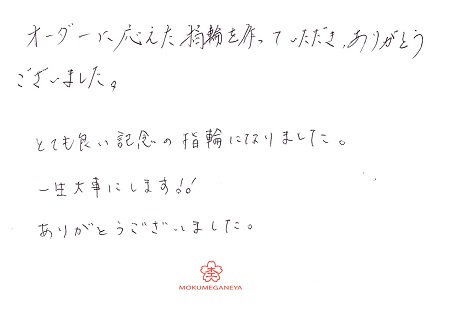 オーダーに応えた指輪を作っていただき、ありがとう
ございました。
とても良い記念の指輪になりました。
一生大事にします!!
ありがとうございました。
MOKUMEGANEYA